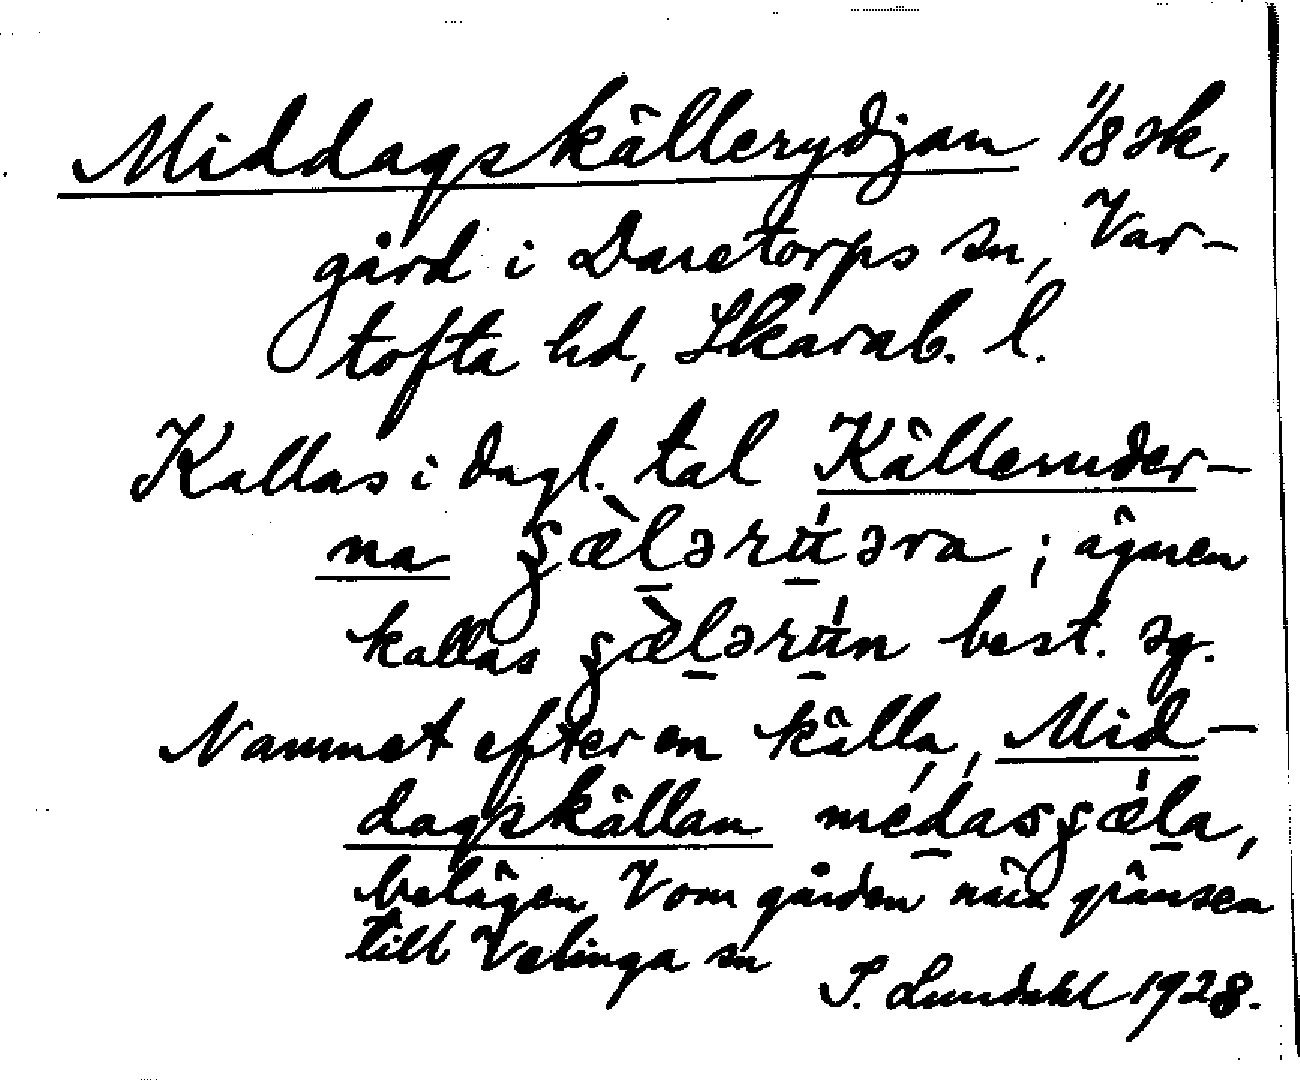 Middagskällerydjan 1/8 sk,
gård i Daretorps sn, Var-
tofta hd, Skarab. l.
Kallas i dagl. tal Källeruder-
na ʂæ̀lərʉ́əra; ägaren
kallas ʂæ̀lərʉ́n best. sg.
Namnet efter en källa, Mid-
dagskällan médasʂǽla,
belägen V om gården nära gränsen
till Velinga sn
I. Lundahl 1928.